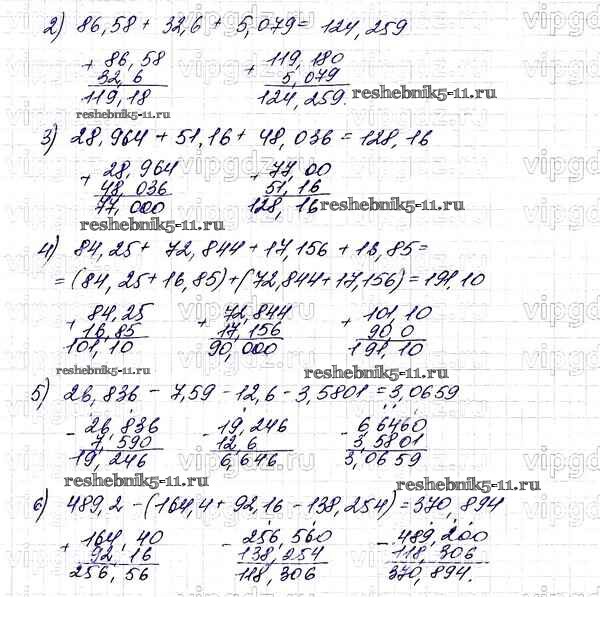 2) 86,58 + 32,6 + 5,079 = 124,259
+ 86,58
32,6
119,18
+ 119,180
5,079
124,259.
reshebnik5-11.ru
reshebnik5-11.ru
3) 28,964 + 51,16 + 48,036 = 128,16
+ 28,964
48,036
77,000
+ 77,00
51,16
128,16
reshebnik5-11.ru
reshebnik5-11.ru
4) 84,25 + 72,844 + 17,156 + 16,85 =
= (84,25 + 16,85) + (72,844 + 17,156) = 191,10
+ 84,25
16,85
101,10
+ 72,844
17,156
90,000
+ 101,10
90 0
191,10
reshebnik5-11.ru
reshebnik5-11.ru
5) 26,836 - 7,59 - 12,6 - 3,5801 = 3,0659
- 26,836
7,590
19,246
- 19,246
12,6
6,646
- 6,6460
3,5801
3,0659
reshebnik5-11.ru
reshebnik5-11.ru
6) 489,2 - (164,4 + 92,16 - 138,254) = 370,894
+ 164,40
92,16
256,56
- 256,560
138,254
118,306
- 489,200
118,306
370,894.